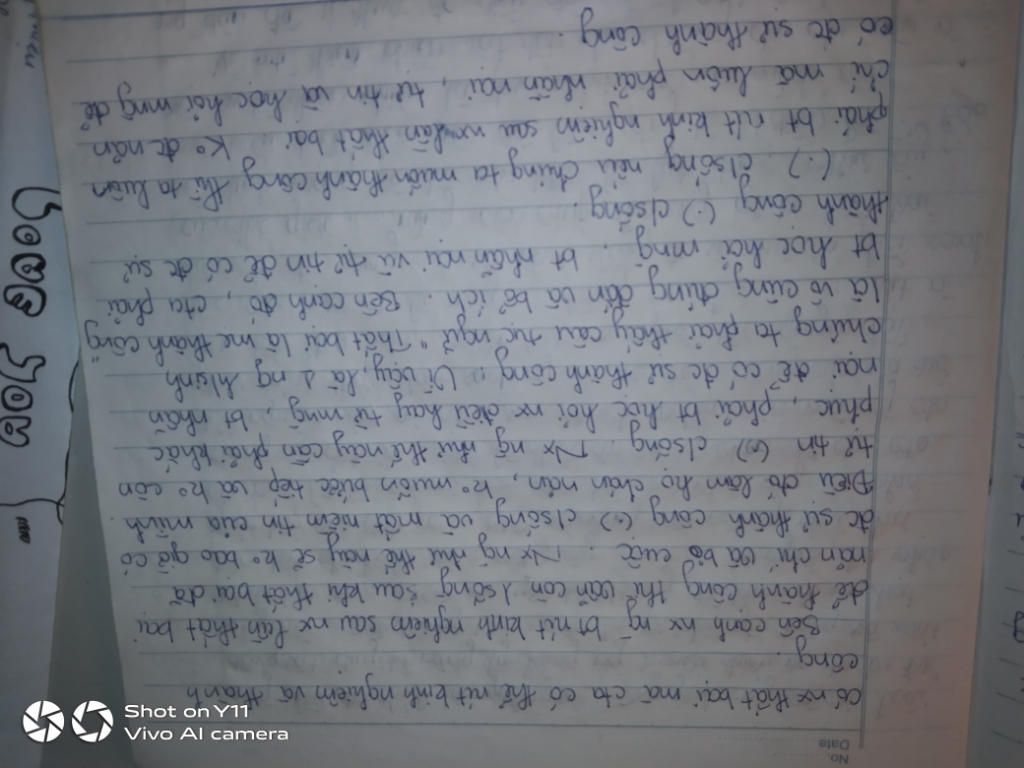 No.
Date
Có nx thất bại mà cta có thể rút kinh nghiệm và thành
công.
Bên cạnh nx ng bt rút kinh nghiệm sau nx lần thất bại
để thành công thì vẫn còn 1 sống sau khi thất bại đã
nản chí và bỏ cuộc. Nx ng như thế này sẽ ko bao giờ có
đc sự thành công (.) c/sống và mất niềm tin của mình.
Điều đó làm họ chán nản, ko muốn bước tiếp và ko còn
tự tin (.) c/sống. Nx ng như thế này cần phải khắc
phục, phải bt học hỏi nx điều hay từ mng, bt nhẫn
nại để có đc sự thành công. Vì vậy, là 1 ng
chúng ta phải thấy câu tục ngữ "Thất bại là mẹ thành công"
là vô cùng đúng đắn và bổ ích. Bên cạnh đó, cta phải
bt học hỏi mng, bt nhẫn nại và tự tin để có đc sự
thành công (.) c/sống.
(.) c/sống nếu chúng ta muốn thành công thì ta luôn
phải bt rút kinh nghiệm sau nx lần thất bại. Ko đc nản
chí mà luôn phải nhẫn nại, tự tin và học hỏi mng để
có đc sự thành công.
Shot on Y11
Vivo AI camera